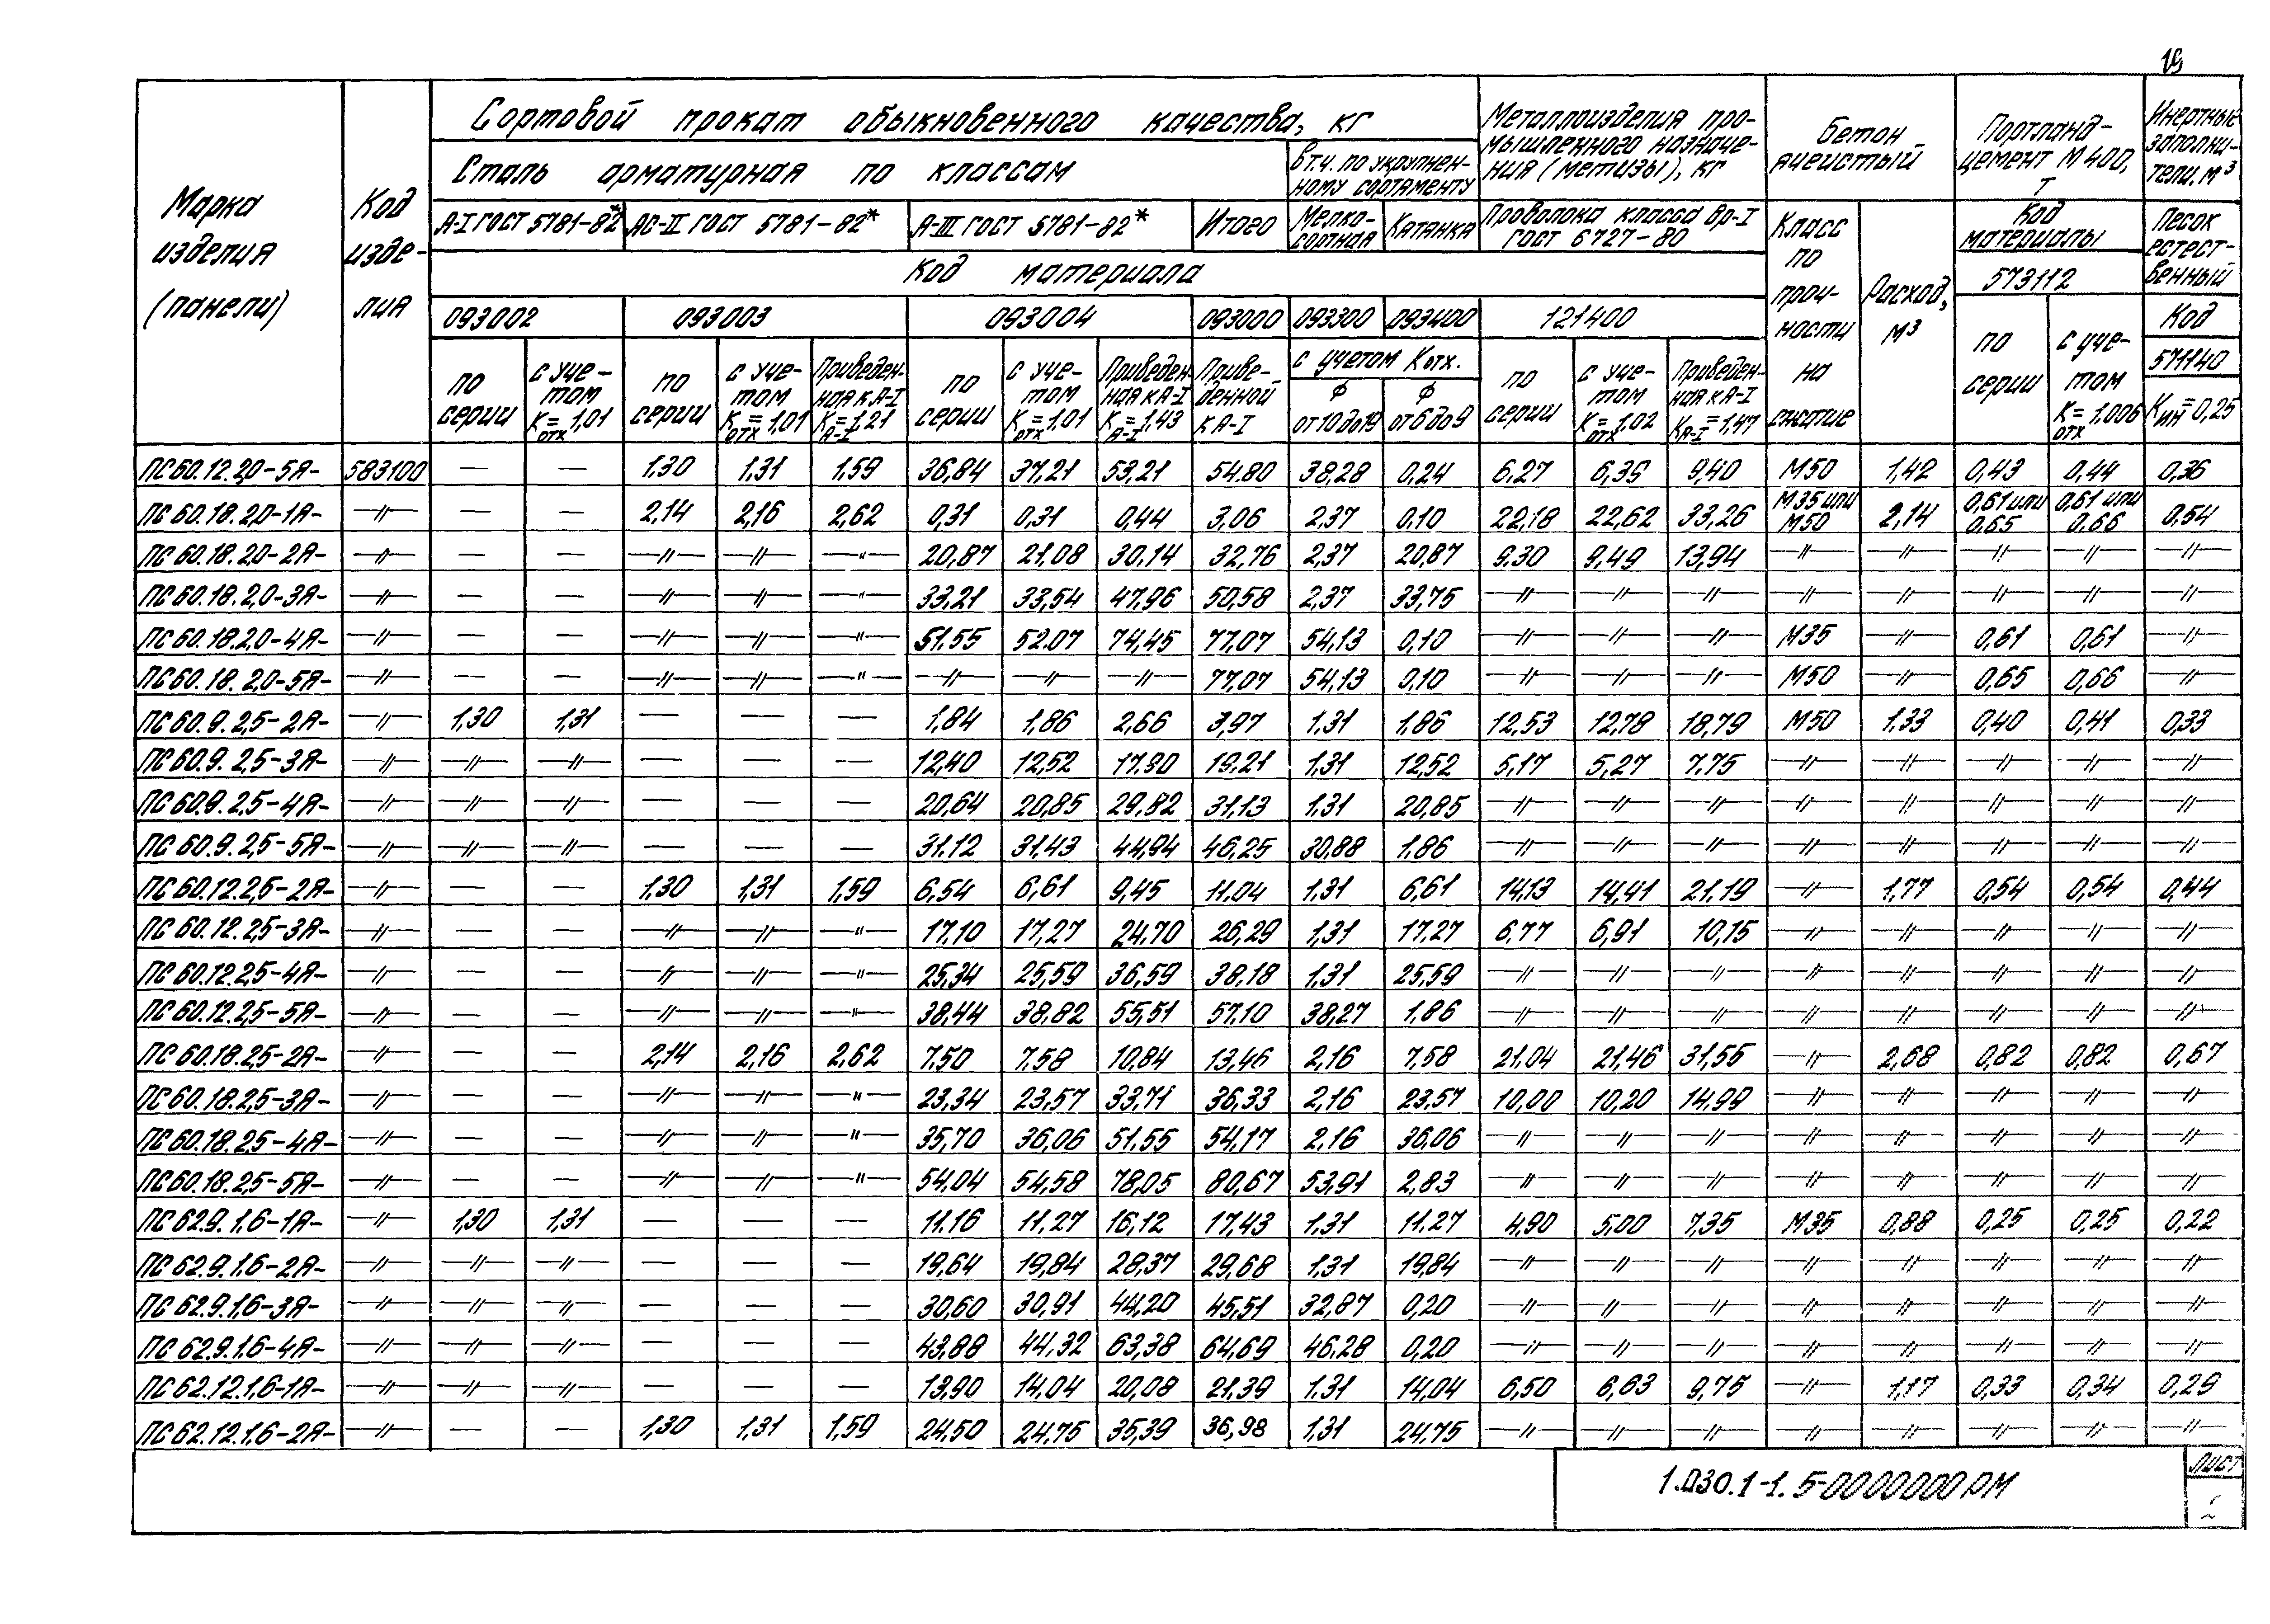 19
Марка изделия (панели)
Код изделия
Сортовой прокат обыкновенного качества, кг
Сталь арматурная по классам
В т.ч. по укрупненному сортаменту
Металлоизделия промышленного назначения (метизы), кг
Бетон ячеистый
Портландцемент М400, Т
Инертные заполнители, м³
А-I ГОСТ 5781-82* АС-II ГОСТ 5781-82* А-III ГОСТ 5781-82* Итого Мелкосортная Катанка Проволока класса Вр-I ГОСТ 6727-80
Класс по прочности на сжатие
Расход, м³
Код материалы
Песок естественный
Код материала
573112
093002 093003 093004 093000 093300 093400 121400
Код
571140
по серии с учетом Котх=1,01 по серии с учетом Котх=1,01 Приведенная к А-I КА-I=1,21 по серии с учетом Котх=1,01 Приведенная к А-I КА-I=1,43 Приведенной к А-I с учетом Котх. Ф от 10 до 19 Ф от 6 до 9 по серии с учетом Котх=1,02 Приведенная к А-I КА-I=1,47 по серии с учетом Котх=1,006 Кин=0,25
ПС60.12.2,0-5Я- 583100 — — 1,30 1,31 1,59 36,84 37,21 53,21 54.80 38,28 0,24 6,27 6,39 9,40 М50 1,42 0,43 0,44 0,36
ПС60.18.2,0-1Я- –〃– — — 2,14 2,16 2,62 0,31 0,31 0,44 3,06 2,37 0,10 22,18 22,62 33,26 М35 или М50 2,14 0,61 или 0.65 0,61 или 0.66 0,54
ПС60.18.2,0-2Я- –〃– — — –〃– –〃– –〃– 20,87 21,08 30,14 32,76 2,37 20,87 9,30 9,49 13,94 –〃– –〃– –〃– –〃– –〃–
ПС60.18.2,0-3Я- –〃– — — –〃– –〃– –〃– 33,21 33,54 47,96 50,58 2,37 33,75 –〃– –〃– –〃– –〃– –〃– –〃– –〃– –〃–
ПС60.18.2,0-4Я- –〃– — — –〃– –〃– –〃– 51.55 52.07 74,45 77,07 54,13 0,10 –〃– –〃– –〃– М35 –〃– 0,61 0,61 –〃–
ПС60.18.2,0-5Я- –〃– — — –〃– –〃– –〃– –〃– –〃– –〃– 77,07 54,13 0,10 –〃– –〃– –〃– М50 –〃– 0,65 0,66 –〃–
ПС60.9.2,5-2Я- –〃– 1,30 1,31 — — — 1,84 1,86 2,66 3,97 1,31 1,86 12,53 12,78 18,79 М50 1,33 0,40 0,41 0,33
ПС60.9.2,5-3Я- –〃– –〃– –〃– — — — 12,40 12,52 17,90 19,21 1,31 12,52 5,17 5,27 7.75 –〃– –〃– –〃– –〃– –〃–
ПС60.9.2,5-4Я- –〃– –〃– –〃– — — — 20,64 20,85 29,82 31,13 1,31 20,85 –〃– –〃– –〃– –〃– –〃– –〃– –〃– –〃–
ПС60.9.2,5-5Я- –〃– –〃– –〃– — — — 31.12 31,43 44,94 46,25 30,88 1,86 –〃– –〃– –〃– –〃– –〃– –〃– –〃– –〃–
ПС60.12.2,5-2Я- –〃– — — 1,30 1,31 1,59 6,54 6,61 9,45 11.04 1,31 6,61 14,13 14,41 21,19 –〃– 1,77 0,54 0,54 0,44
ПС60.12.2,5-3Я- –〃– — — –〃– –〃– –〃– 17,10 17,27 24,70 26,29 1,31 17,27 6,77 6,91 10,15 –〃– –〃– –〃– –〃– –〃–
ПС60.12.2,5-4Я- –〃– — — –〃– –〃– –〃– 25,34 25,59 36,59 38,18 1,31 25,59 –〃– –〃– –〃– –〃– –〃– –〃– –〃– –〃–
ПС60.12.2,5-5Я- –〃– — — –〃– –〃– –〃– 38,44 38,82 55,51 57,10 38,27 1,86 –〃– –〃– –〃– –〃– –〃– –〃– –〃– –〃–
ПС60.18.2,5-2Я- –〃– — — 2,14 2,16 2,62 7,50 7,58 10,84 13,46 2,16 7,58 21.04 21,46 31,55 –〃– 2,68 0,82 0,82 0,67
ПС60.18.2,5-3Я- –〃– — — –〃– –〃– –〃– 23,34 23,57 33,71 36,33 2,16 23,57 10,00 10,20 14,99 –〃– –〃– –〃– –〃– –〃–
ПС60.18.2,5-4Я- –〃– — — –〃– –〃– –〃– 35,70 36,06 51,55 54,17 2,16 36,06 –〃– –〃– –〃– –〃– –〃– –〃– –〃– –〃–
ПС60.18.2,5-5Я- –〃– — — –〃– –〃– –〃– 54.04 54,58 78,05 80,67 53,91 2,83 –〃– –〃– –〃– –〃– –〃– –〃– –〃– –〃–
ПС62.9.1,6-1Я- –〃– 1,30 1,31 — — — 11.16 11,27 16,12 17,43 1,31 11.27 4,90 5,00 7,35 М35 0,88 0,25 0,25 0,22
ПС62.9.1,6-2Я- –〃– –〃– –〃– — — — 19,64 19,84 28,37 29,68 1,31 19,84 –〃– –〃– –〃– –〃– –〃– –〃– –〃– –〃–
ПС62.9.1,6-3Я- –〃– –〃– –〃– — — — 30,60 30,91 44,20 45,51 32,87 0,20 –〃– –〃– –〃– –〃– –〃– –〃– –〃– –〃–
ПС62.9.1,6-4Я- –〃– –〃– –〃– — — — 43,88 44,32 63,38 64,69 46,28 0,20 –〃– –〃– –〃– –〃– –〃– –〃– –〃– –〃–
ПС62.12.1,6-1Я- –〃– –〃– –〃– — — — 13,90 14,04 20,08 21,39 1.31 14,04 6,50 6,63 9,75 –〃– 1,17 0,33 0,34 0,29
ПС62.12.1,6-2Я- –〃– — — 1,30 1,31 1,59 24,50 24,75 35,39 36,98 1,31 24,75 –〃– –〃– –〃– –〃– –〃– –〃– –〃– –〃–
1.030.1-1.5-0000000РМ
Лист